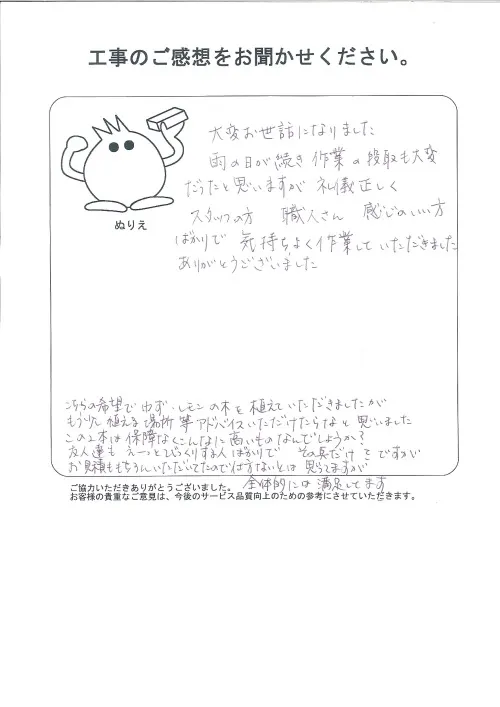 工事のご感想をお聞かせください。
大変お世話になりました
雨の日が続き 作業の段取も大変
だったと思いますが 礼儀正しく
スタッフの方 職人さん 感じのいい方
ばかりで 気持ちよく作業していただきました
ありがとうございました
ぬりえ
こちらの希望で ゆず・レモンの木を植えていただきましたが
もう少し 植える場所等アドバイスいただけたらなと思いました
この2本は保障なくこんなに高いものなんでしょうか?
友人達も えーっとびっくりする人ばかりで その点だけ ですが
お見積ももちろんいただいてたので仕方ないとは思ってますが
全体的には満足してます
ご協力いただきありがとうございました。
お客様の貴重なご意見は、今後のサービス品質向上のための参考にさせていただきます。